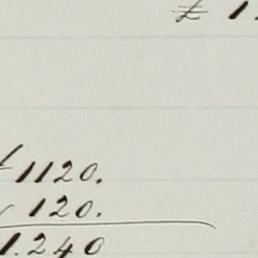 £ 1
1120.
120.
1.240